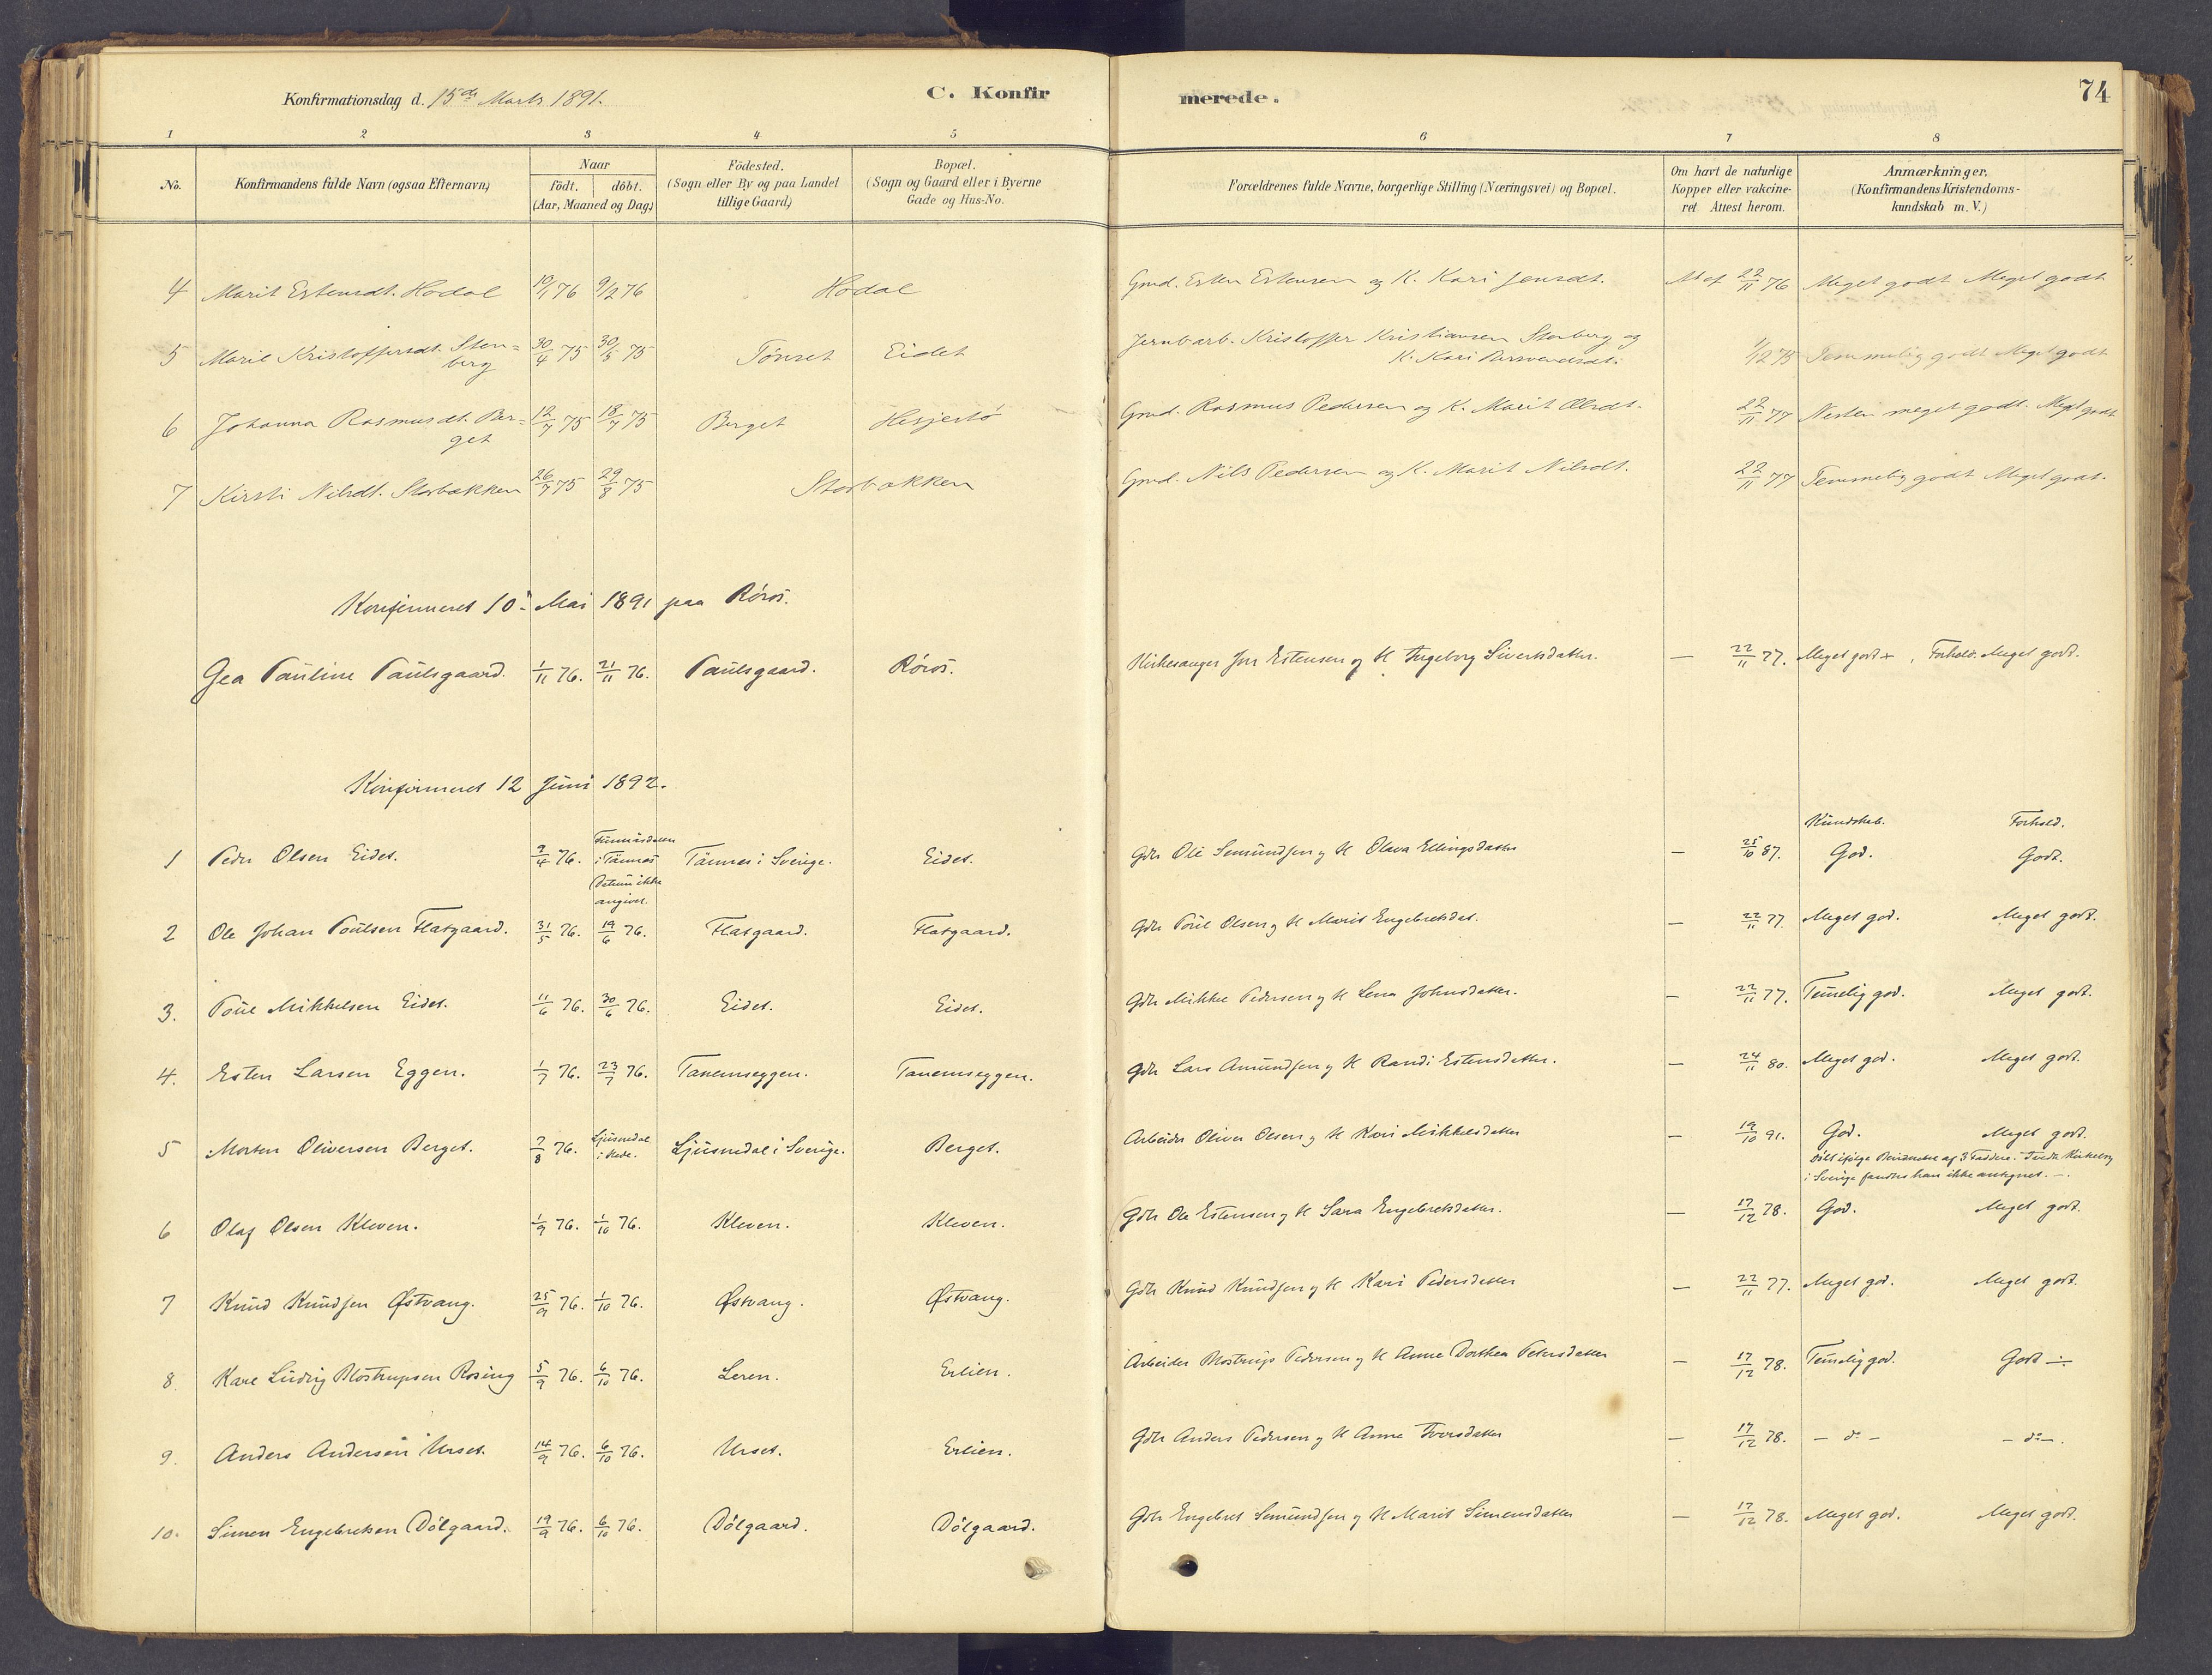 Konfirmationsdag d. 15de Marts 1891. C. Konfirmerede. 74
1 2 3 4 5 6 7 8
No. Konfirmandens fulde Navn (ogsaa Efternavn) Naar födt. döbt. (Aar, Maaned og Dag) Födested. (Sogn eller By og paa Landet tillige Gaard) Bopæl. (Sogn og Gaard eller i Byerne Gade og Hus-No. Forældrenes fulde Navne, borgerlige Stilling (Næringsvei) og Bopæl. Om havt de naturlige Kopper eller vakcineret Attest herom. Anmærkninger. (Konfirmandens Kristendomskundskab m. V.)
4 Marit Estensdt. Hodal 10/1 76 9/2 76 Hodal Gmd. Esten Estensen og K. Kari Jensdt. 22/11 76 Meget godt Meget godt
5 Marie Kristoffersdt. Stenberg 30/4 75 30/5 75 Tönset Eidet Jernbarb. Kristoffer Kristiansen Stenberg og K. Kari 1/12 75 Temmelig godt Meget godt
6 Johanna Rasmusdt. Berget 12/7 75 18/7 75 Berget Hesjestö Gmd. Rasmus Pedersen og K. Marit Olsdt. 22/11 77 Nesten meget godt. Meget godt
7 Kirsti Nilsdt. Storbækken 26/7 75 29/8 75 Storbækken Gmd. Nils Pedersen og K. Marit Nilsdt. 22/11 77 Temmelig godt Meget godt.
Konfirmeret 10. Mai 1891 paa Röros.
Gea Pauline Paulsgaard. 1/11 76. 21/11 76. Paulsgaard. Röros. Kirkesanger Jon Estensen og K Ingeborg Sivertsdatter. — 22/11 77. Meget godt +, Forhold: Meget godt.
Konfirmeret 12 Juni 1892.
Kundskab. Forhold.
1 Peder Olsen Eidet. 2/4 76. i Tännes Datum ikke angivet. Tännes i Sverige. Eidet. Gdr Ole Semundsen og K Olava Ellingsdatter — 25/10 87. God. Godt.
2 Ole Johan Poulsen Flatgaard. 31/5 76. 19/6 76. Flatgaard. Flatgaard. Gdr Poul Olsen og K Marit Engebretsdat. — 22/11 77. Meget god. Meget godt.
3. Poul Mikkelsen Eidet. 11/6 76. 30/6 76. Eidet. Eidet. Gdr Mikkel Pedersen og K Lena Johnsdatter. — 22/11 77. Temelig god. Meget godt.
4. Esten Larsen Eggen. 1/7 76. 23/7 76. Tanemseggen. Tanemseggen. Gdr Lars Amundsen og K Randi Estensdatter. — 24/11 80. Meget god. Meget godt.
5 Morten Oliversen Berget. 7/8 76. Ljusnedal i Hede. Ljusnedal i Sverige. Berget. Arbeider Oliver Olsen og K Kari Mikkelsdatter — 19/10 91. God. Meget godt.
Döbt ifölge af 3 Faddere.
i Sverige fandtes han ikke antegnet. —
6 Olaf Olsen Kleven. 1/9 76. 1/10 76. Kleven. Kleven. Gdr Ole Estensen og K Sara Engebretsdatter. — 17/12 78. God. Meget godt.
7 Knud Knudsen Østvang. 25/9 76. 1/10 76. Østvang. Østvang. Gdr Knud Knudsen og K Kari Pedersdatter — 22/11 77. Meget god. Meget godt.
8. Karl Ludvig Mostrupsen Rosing 5/9 76. 6/10 76. Leren. Erlien. Arbeider Mostrup Pedersen og K Anne Dorthea Petersdatter — 17/12 78. Temelig god. Godt ÷
9. Anders Andersen Urset. 14/9 76. 6/10 76. Urset. Erlien. Gdr Anders Pedersen og K Anne Iversdatter — 17/12 78. – do – – do –.
10. Simen Engebretsen Dölgaard. 19/9 76. 6/10 76. Dölgaard. Dölgaard. Gdr Engebret Semundsen og K Marit Simensdatter — 17/12 78. Meget god. Meget godt.